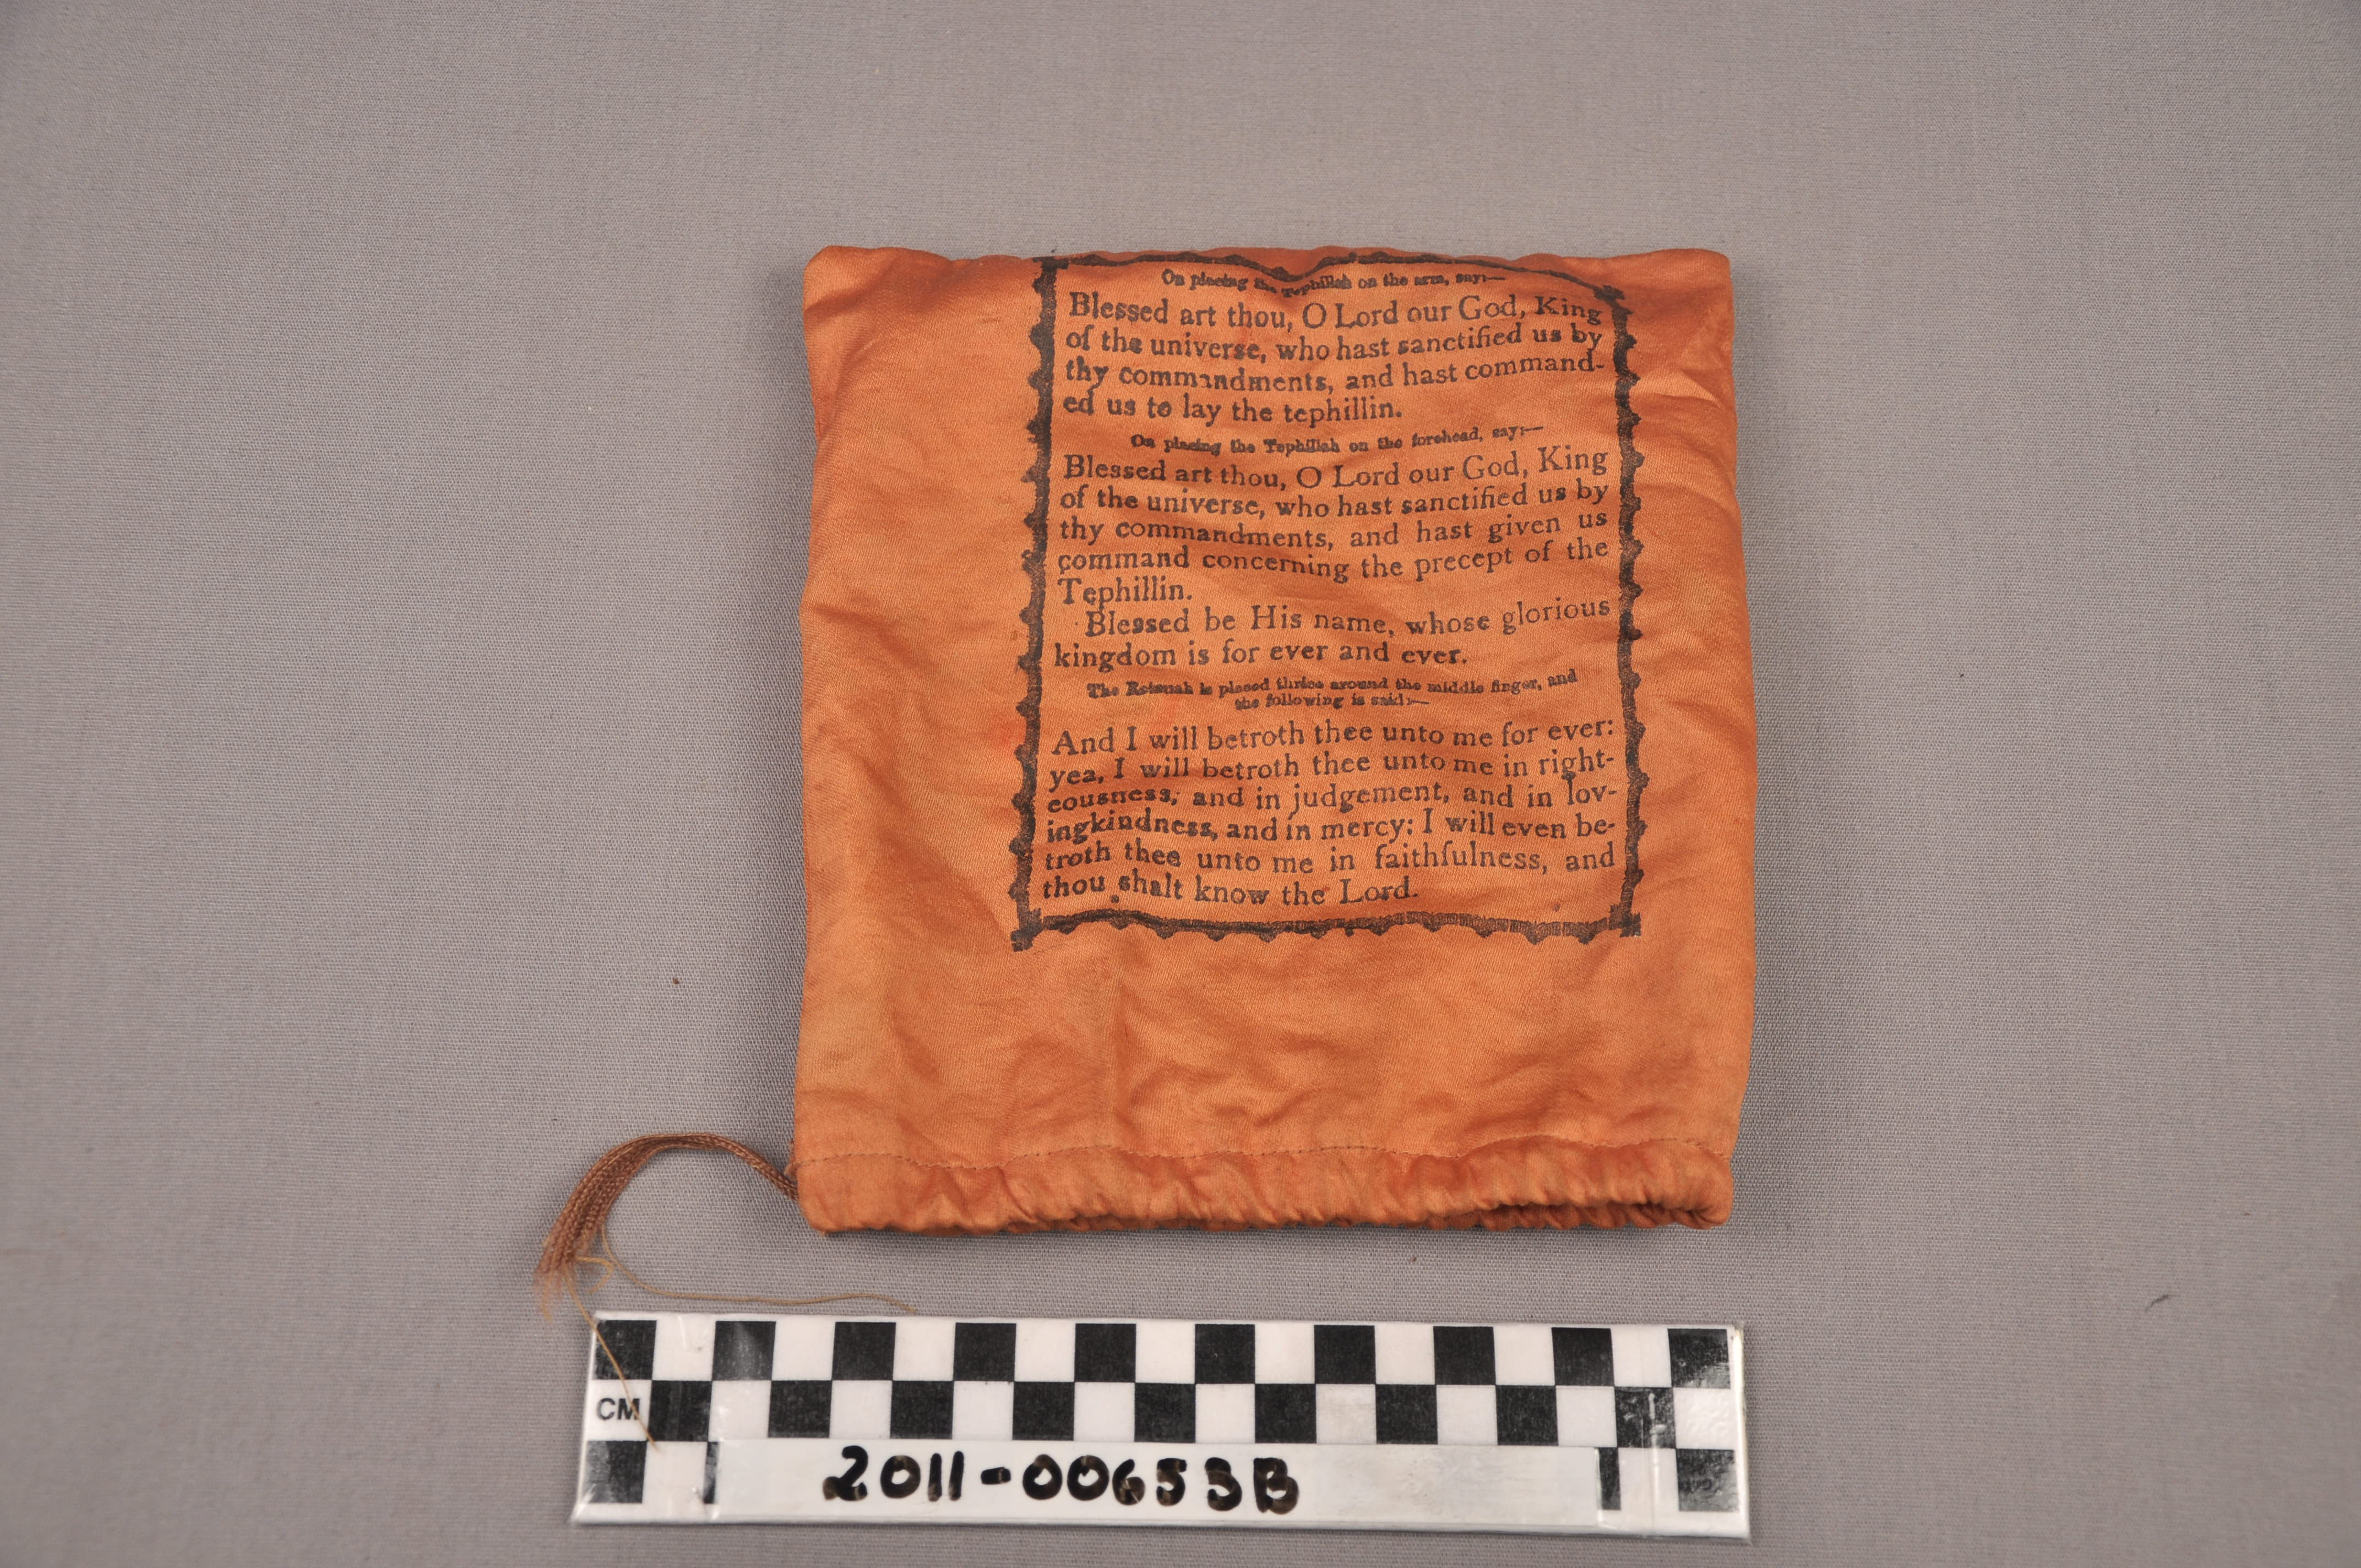 On placing the Tephillah on the arm, say:—
Blessed art thou, O Lord our God, King
of the universe, who hast sanctified us by
thy commandments, and hast command-
ed us to lay the tephillin.
On placing the Tephillah on the forehead, say:—
Blessed art thou, O Lord our God, King
of the universe, who hast sanctified us by
thy commandments, and hast given us
command concerning the precept of the
Tephillin.
Blessed be His name, whose glorious
kingdom is for ever and ever.
The Retsuah is placed thrice around the middle finger, and
the following is said:—
And I will betroth thee unto me for ever:
yea, I will betroth thee unto me in right-
eousness, and in judgement, and in lov-
ingkindness, and in mercy: I will even be-
troth thee unto me in faithfulness, and
thou shalt know the Lord.
CM
2011-00653B